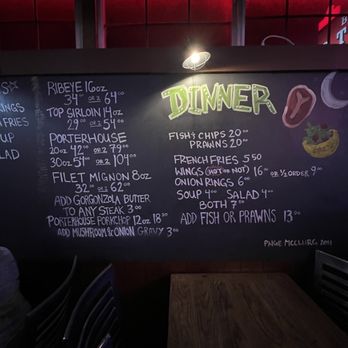 S
INGS
FRIES
UP
LAD
RIBEYE 16oz
34⁰⁰ OR 2 64⁰⁰
TOP SIRLOIN 14oz
29⁰⁰ OR 2 54⁰⁰
PORTERHOUSE
20oz 42⁰⁰ OR 2 79⁰⁰
30oz 54⁰⁰ OR 2 104⁰⁰
FILET MIGNON 8oz
32⁰⁰ OR 2 62⁰⁰
ADD GORGONZOLA BUTTER
TO ANY STEAK 3⁰⁰
PORTERHOUSE PORKCHOP 12oz 18³⁰
ADD MUSHROOM & ONION GRAVY 3⁰⁰
DINNER
FISH & CHIPS 20⁰⁰
PRAWNS 20⁰⁰
FRENCH FRIES 5⁵⁰
WINGS (HOT OR NOT) 16⁰⁰ OR ½ ORDER 9⁰⁰
ONION RINGS 6⁰⁰
SOUP 4⁰⁰ SALAD 4⁰⁰
BOTH 7⁰⁰
ADD FISH OR PRAWNS 13⁰⁰
PAIGE MCCLURG